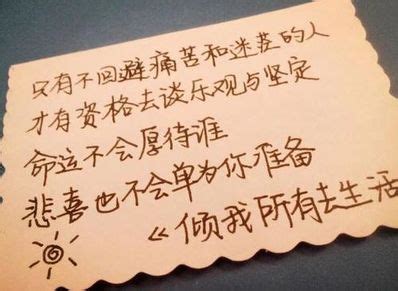 只有不回避痛苦和迷茫的人
才有资格去谈乐观与坚定
命运不会厚待谁
悲喜也不会单为你准备
《倾我所有去生活